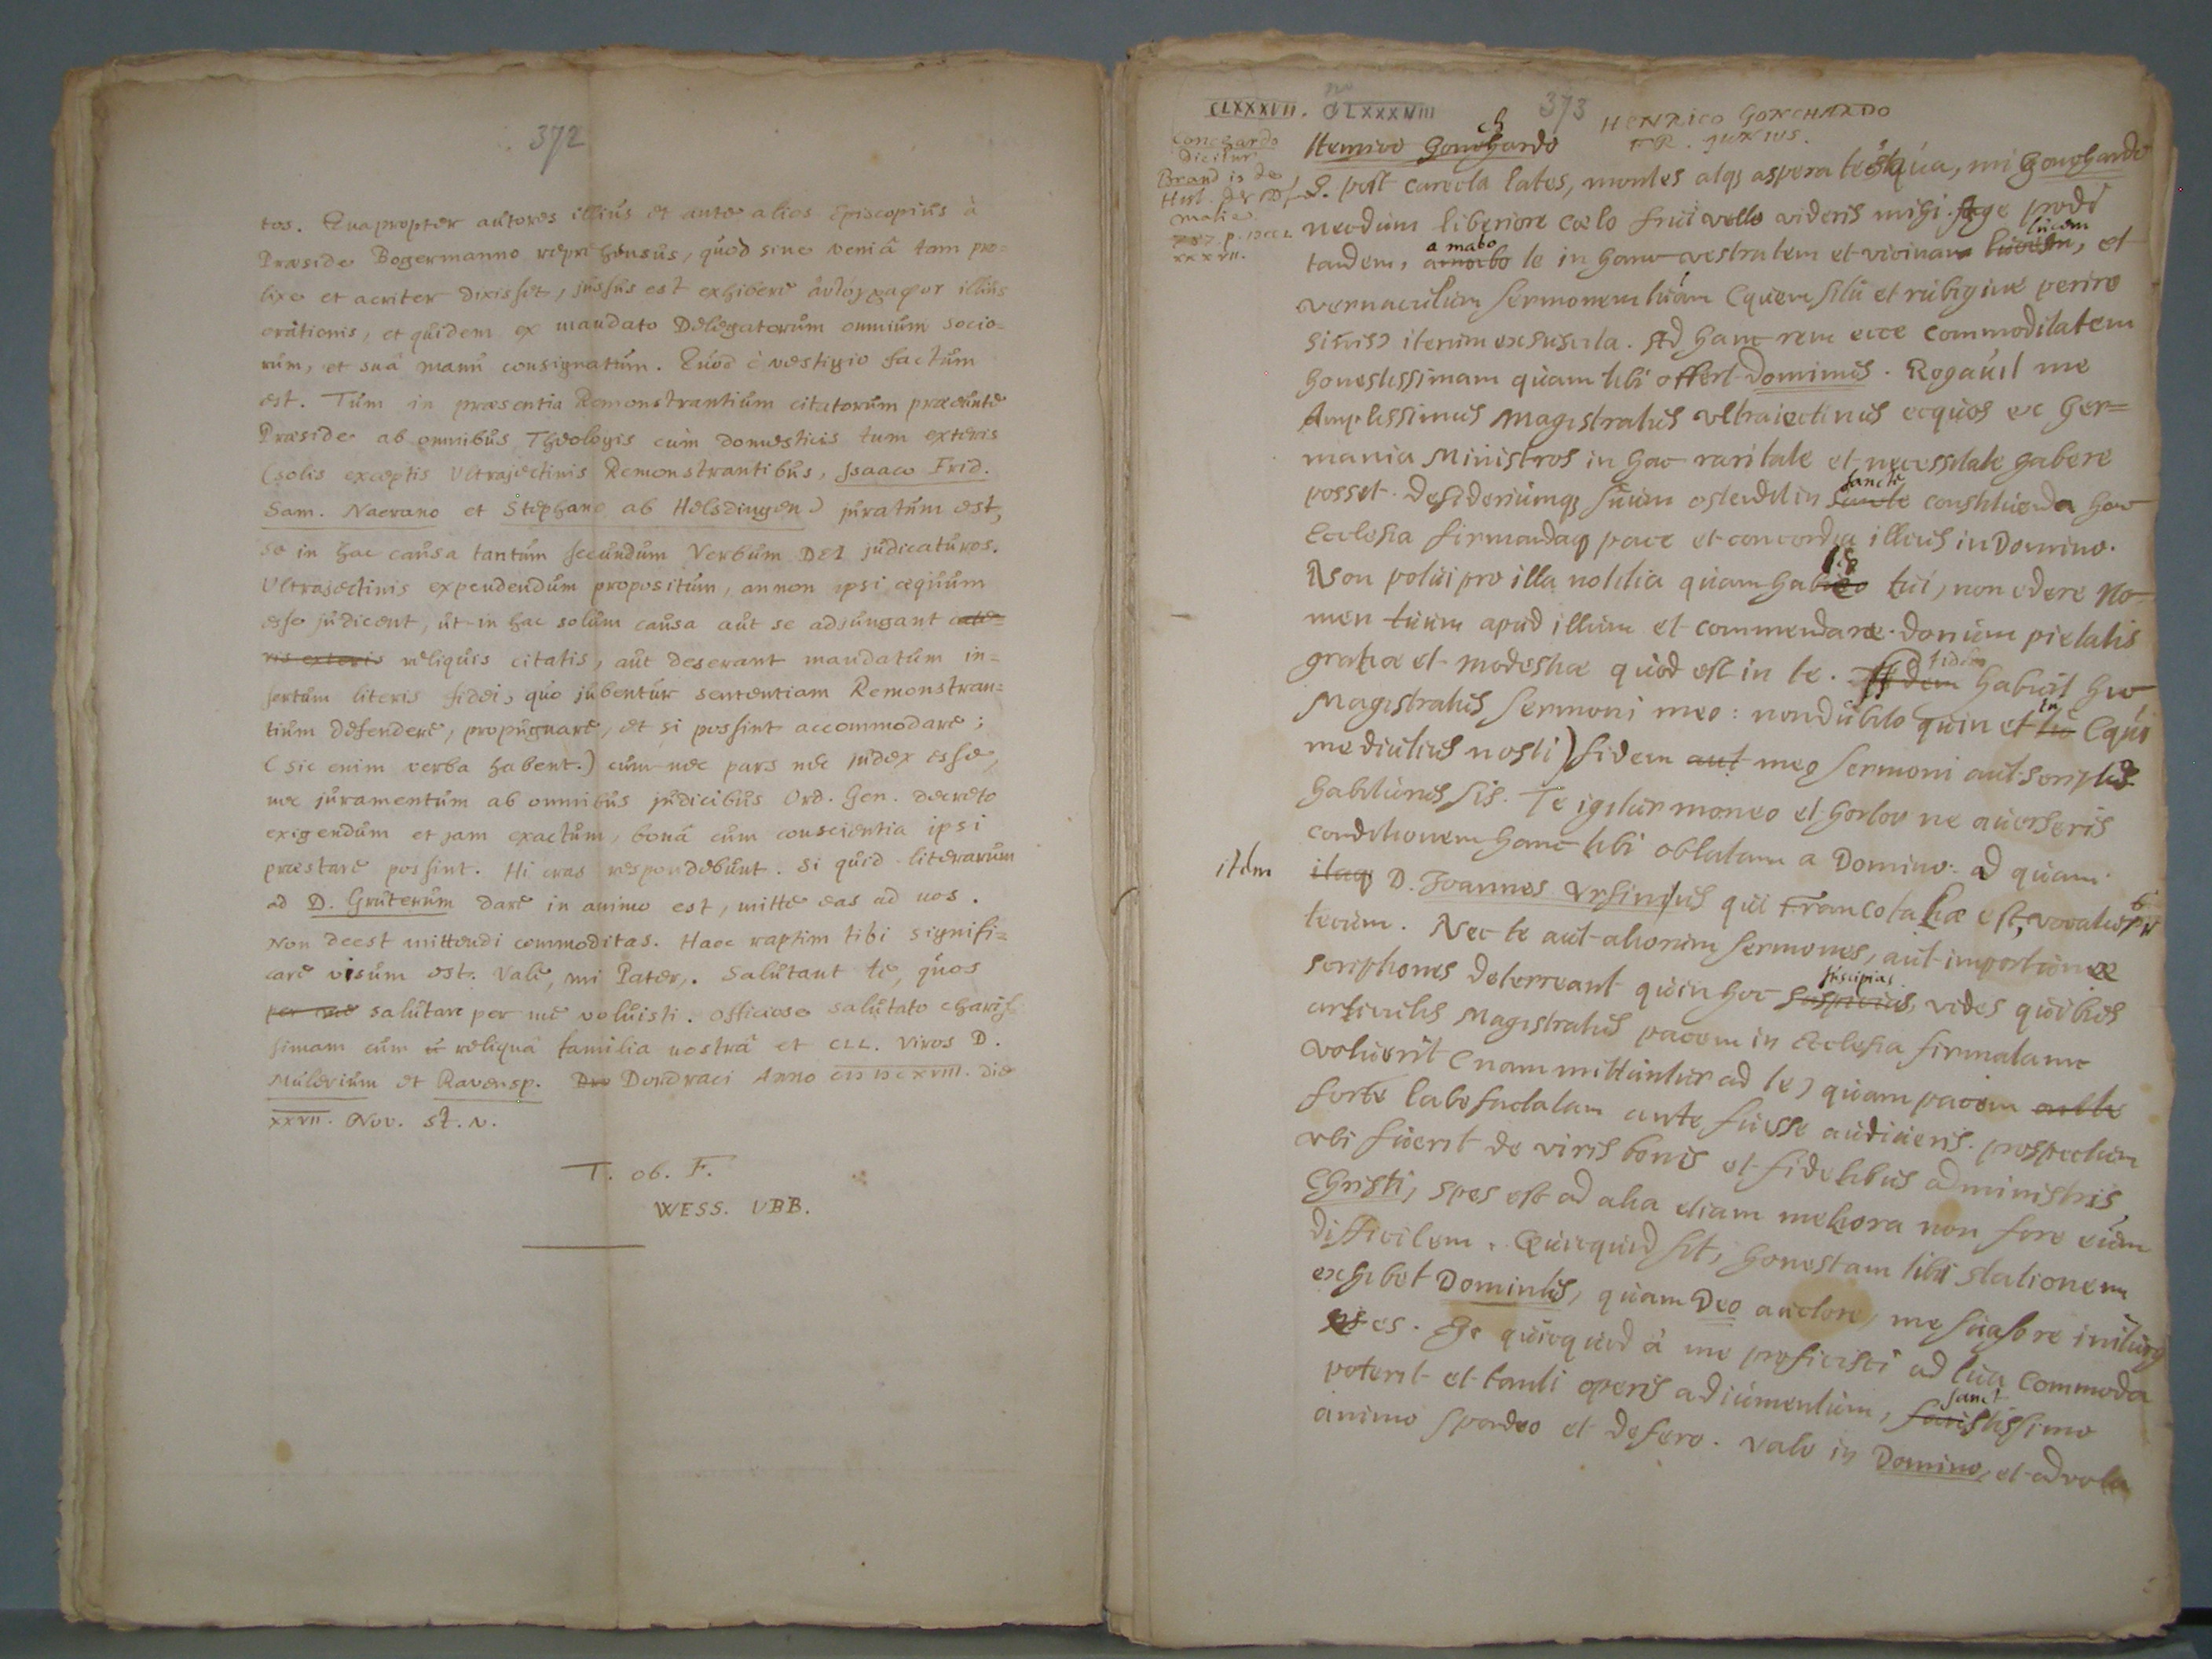 372
tos. Quapropter autores illius et ante alios Episcopius à
Præside Bogermanno reprehensus, quod sine veniâ tam pro=
lixe et acriter dixisset, jussus est exhibere illius
orationis, et quidem ex mandato Delegatorum omnium socio=
rum, et suâ manu consignatum. Quod è vestigio factum
est. Tum in præsentia Remonstrantium citatorum præeunte
Præside ab omnibus Theologis cum domesticis tum exteris
(solis exceptis Ultrajectinis Remonstrantibus, Isaaco Frid.
Sam. Naerano et Stephano ab Helsdingen) juratum est,
se in hac causa tantum secundum Verbum DEI judicaturos.
Ultrajectinis expendendum propositum, annon ipsi æquum
esse judicent, ut in hac solum causa aut se adjungant cæte=
ris exteris reliquis citatis, aut deserant mandatum in=
sertum literis fidei, quo jubentur sententiam Remonstran=
tium defendere, propugnare, et si possint accommodare;
(sic enim verba habent.) cum nec pars nec judex esse,
nec juramentum ab omnibus judicibus Ord. Gen. decreto
exigendum et jam exactum, bonâ cum conscientia ipsi
præstare possint. Hi cras respondebunt. Si quid literarum
ad D. Gruterum dare in animo est, mitte eas ad nos.
Non deest mittendi commoditas. Hæc raptim tibi signifi=
care visum est. Vale, mi Pater,. Salutant te, quos
per me salutare per me voluisti. Officiose salutato charis=
simam cum reliquâ familia nostrâ et CLL. Viros D.
Mulerium et Ravensp. Dordraci Anno CIƆ IƆC XVIII. die
XXVII. Nov. St. N.
T. ob. F.
WESS. UBB.
373
CLXXXVII. CLXXXVIII
HENRICO GONCHARDO
FR. JUNIUS.
Conchardo
dicitur
Brand in de
Hist. der Ref
matie
p.
xxxvii.
Henrico Gonchardo
S. post carecta lates, montes atq aspera tesqua, mi Goncharde
necdum liberiore cœlo frui velle videris mihi. Age prodi
tandem, amabo te in hanc vestratem et vicinam lucem, et
vernaculum sermonem tuum (quem situ et rubigine perire
sinis) iterum exsuscita. Ad hanc rem ecce commoditatem
honestissimam quam tibi offert Dominus. Rogavit me
Amplissimus Magistratus Ultraiectinus ecquos ex Ger=
mania Ministros in hac raritate et necessitate habere
posset. desideriumq suum ostendit in sancte constituenda hac
Ecclesia firmandaq pace et concordia illius in Domino.
Non potui pro illa notitia quam habeo tui, non edere no
men tuum apud illum et commendare donum pietatis
gratiæ et modestiæ quod est in te. Fidem habuit hic
Magistratus sermoni meo: non dubito quin et tu (qui
me diutius nosti) fidem aut meo sermoni aut scriptis
habiturus sis. Te igitur moneo et hortor ne averseris
conditionem hanc tibi oblatam a Domino: ad quam
item
itaq D. Joannes Ursinus qui Francotaliæ est, vocabit
tecum. Nec te aut aliorum sermones, aut importunæ
scriptiones deterreant quin hoc suscipias, vides quibus
articulis Magistratus pacem in Ecclesia firmatam
voluerit (nam mittuntur ad te) quam pacem
forte labefactatam ante fuisse audiveris. prospectum
ubi fuerit de viris bonis et fidelibus administris
Christi, spes est ad alia etiam meliora non fore eum
difficilem. Quicquid sit, honestam tibi stationem
exhibet Dominus, quam Deo auctore, me suasore initurus
es. Ego quicquid à me proficisci ad tua commoda
poterit et tanti operis adiumentum, sanctissimo
animo spondeo et defero. Vale in Domino, et advola